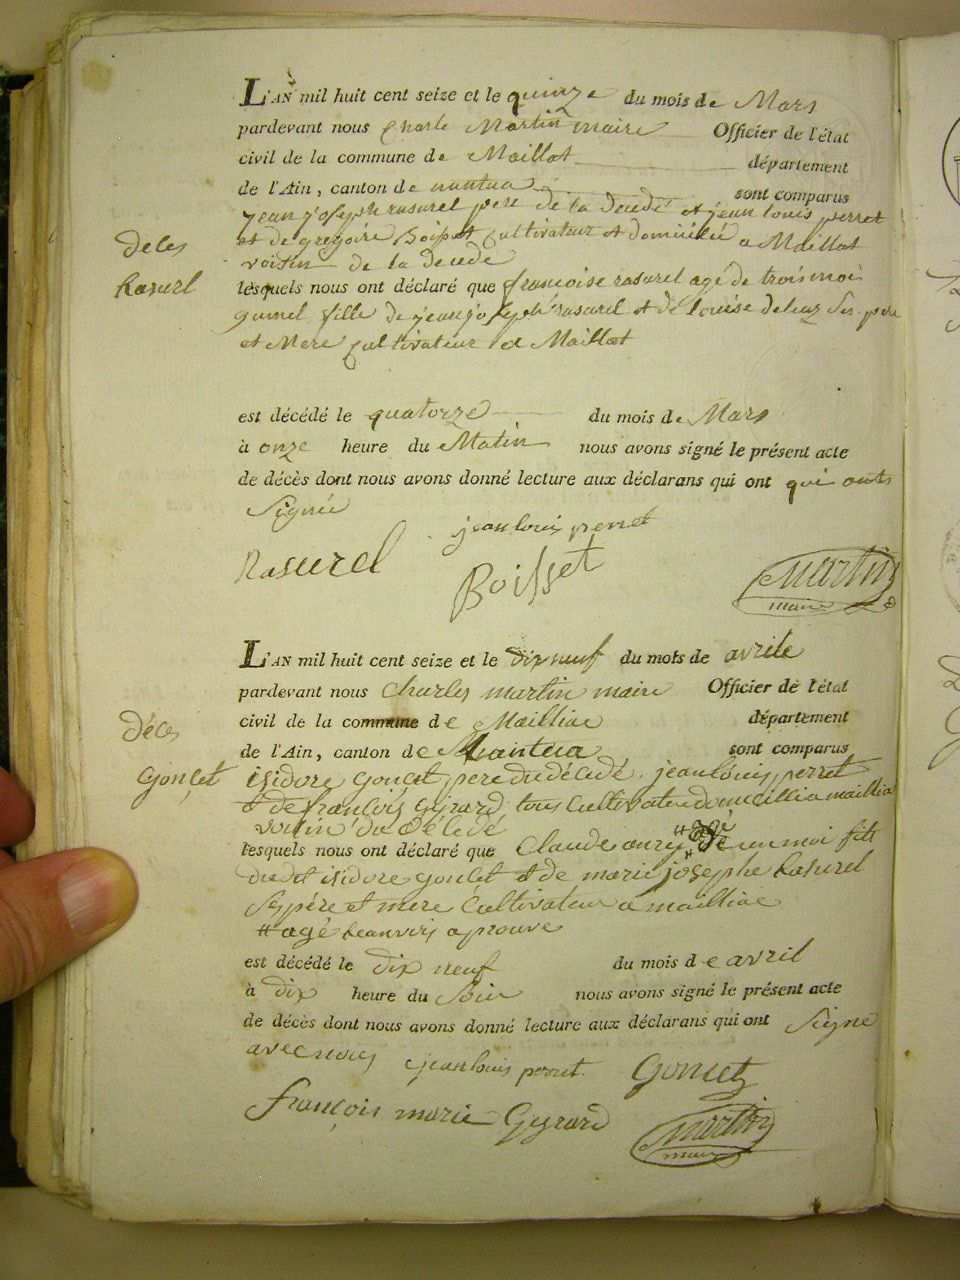 L'AN mil huit cent seize et le quinze du mois de Mars
pardevant nous Charle Martin maire Officier de l'état
civil de la commune de Maillat département
de l'Ain, canton de nantua sont comparus
jean joseph rasurel pere de la decedé et jean louis perret
et de gregoire Boisset Cultivateur et domicilié a Maillat
voisin de la decede
déces
Rasurel
lesquels nous ont déclaré que francoise rasurel agé de trois moi
gumel fille de jean joseph rasurel et de louise deleuz ses pere
et Mere Cultivateur a Maillat
est décédé le quatorze du mois de Mars
à onze heure du Matin nous avons signé le présent acte
de décès dont nous avons donné lecture aux déclarans qui ont qui onts
Signié
jean louis perret
Rasurel
Boisset
Martin
maire
L'AN mil huit cent seize et le dix neuf du mois de avrile
pardevant nous Charles martin maire Officier de l'état
civil de la commune de Mailliac département
de l'Ain, canton de Nantua sont comparus
déces
Gonçet
isidore Gonçet pere du décédé jean louis perret
et de françois Gyrard tous Cultivateur domicillia maillia
voisin du décédé
lesquels nous ont déclaré que Claude # agé de un moi fils
du dit isidore gonçet et de marie josephe Rasurel
Ses père et mere Cultivateur a mailliac
# agé aprouve
est décédé le dix neuf du mois de avril
à dix heure du Soir nous avons signé le présent acte
de décès dont nous avons donné lecture aux déclarans qui ont Signe
avec nous jean louis perret Goncet
françois marie Gyrard
Martin
maire